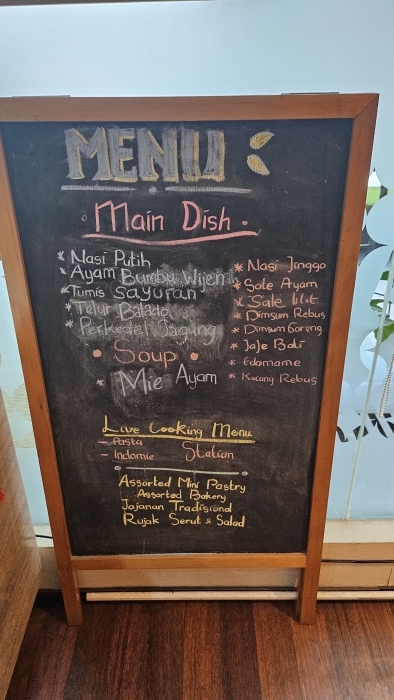 MENU
Main Dish
* Nasi Putih
* Ayam Bumbu Wijen
* Tumis Sayuran
* Telur Balado
* Perkedel Jagung
• Soup •
* Mie Ayam
* Nasi Jinggo
* Sate Ayam
* Sate lilit
* Dimsum Rebus
* Dimsum Goreng
* Jaje Bali
* Edamame
* Kacang Rebus
Live Cooking Menu
- Pasta Station
- Indomie
Assorted Mini Pastry
Assorted Bakery
Jajanan Tradisional
Rujak Serut & Salad